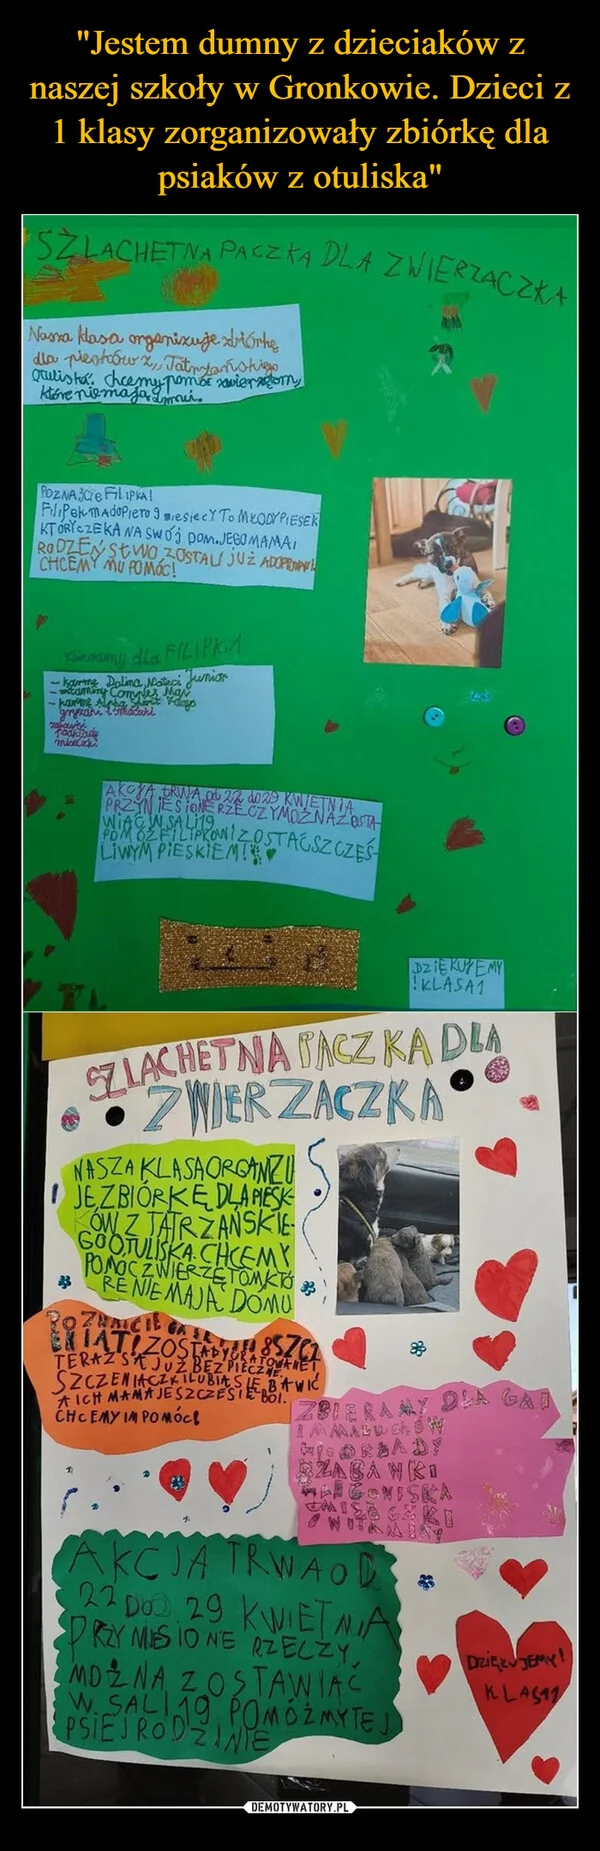 "Jestem dumny z dzieciaków z
naszej szkoły w Gronkowie. Dzieci z
1 klasy zorganizowały zbiórkę dla
psiaków z otuliska"
SZLACHETNA PACZKA DLA ZWIERZACZKA
Nasza klasa organizuje zbiórkę
dla piesków z „Tatrzańskiego
otuliska". Chcemy pomóc zwierzętom,
które nie mają domu.
POZNAJCIE FILIPKA!
Filipek ma dopiero 9 miesięcy To MŁODY PIESEK
KTÓRY CZEKA NA SWÓJ DOM. JEGO MAMA I
RODZEŃSTWO ZOSTALI JUŻ
CHCEMY MU POMÓC!
zbieramy dla FILIPKA
- karmę Dolina Noteci Junior
- witaminy Complex Max
- karmę Alpha Spirit 7 days
gryzaki i smaczki
zabawki
podkłady
miseczki
AKCJA TRWA od 22 do 29 KWIETNIA
PRZYNIESIONE RZECZY MOŻNA ZOSTA-
WIAĆ W SALI 19
POMÓŻ FILIPKOWI ZOSTAĆ SZCZĘŚ-
LIWYM PIESKIEM!
DZIĘKUJEMY
! KLASA 1
SZLACHETNA PACZKA DLA
ZWIERZACZKA
NASZA KLASA ORGANIZU
JE ZBIÓRKĘ DLA PIESK-
ÓW Z TATRZAŃSKIE-
GO OTULISKA. CHCEMY
POMÓC ZWIERZĘTOM KTÓ
RE NIE MAJĄ DOMU
POZNAJCIE
TERAZ SĄ JUŻ BEZPIECZNE.
SZCZENIACZKI LUBIĄ SIĘ BAWIĆ
A ICH MAMA JESZCZE SIĘ BOI.
CHCEMY IM POMÓC!
ZBIERAMY DLA GAI
I MALUCHÓW
PODKŁADY
ZABAWKI
LEGOWISKA
MISECZKI
WITAMINY
AKCJA TRWA OD
22 DO 29 KWIETNIA
PRZYNIESIONE RZECZY
MOŻNA ZOSTAWIAĆ
W SALI 19 POMÓŻMY TEJ
PSIEJ RODZINIE
DZIĘKUJEMY!
KLASA 1
DEMOTYWATORY.PL